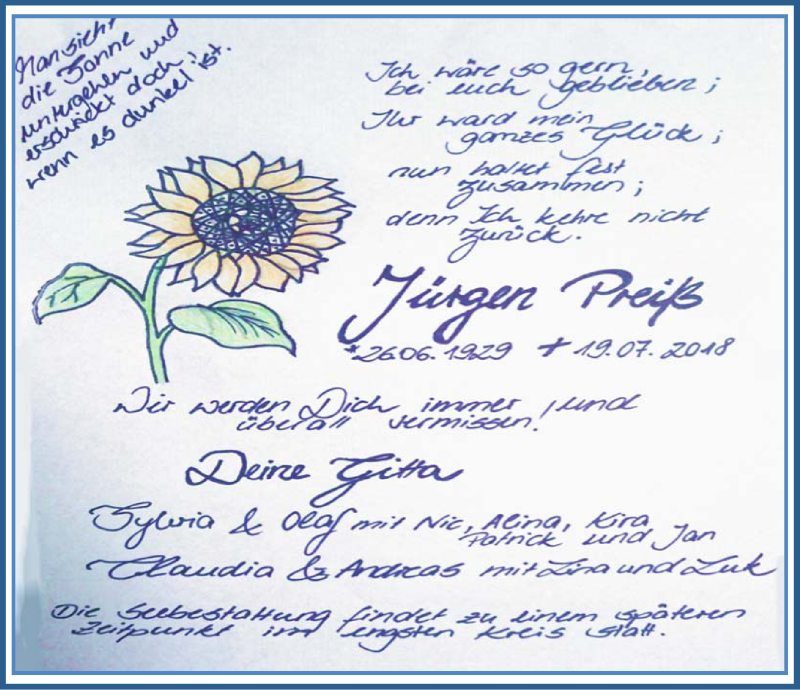 Man sieht
die Sonne
untergehen und
erschrickt doch,
wenn es dunkel ist.
Ich wäre so gern,
bei euch geblieben;
Ihr ward mein
ganzes Glück;
nun haltet fest
zusammen;
denn Ich kehre nicht
zurück.
Jürgen Preiß
*26.06.1929 † 19.07.2018
Wir werden Dich immer und
überall vermissen!
Deine Gitta
Sylvia & Olaf mit Nic, Alina, Kira,
Patrick und Jan
Claudia & Andreas mit Lina und Luk
Die Seebestattung findet zu einem späteren
Zeitpunkt im engsten Kreis statt.